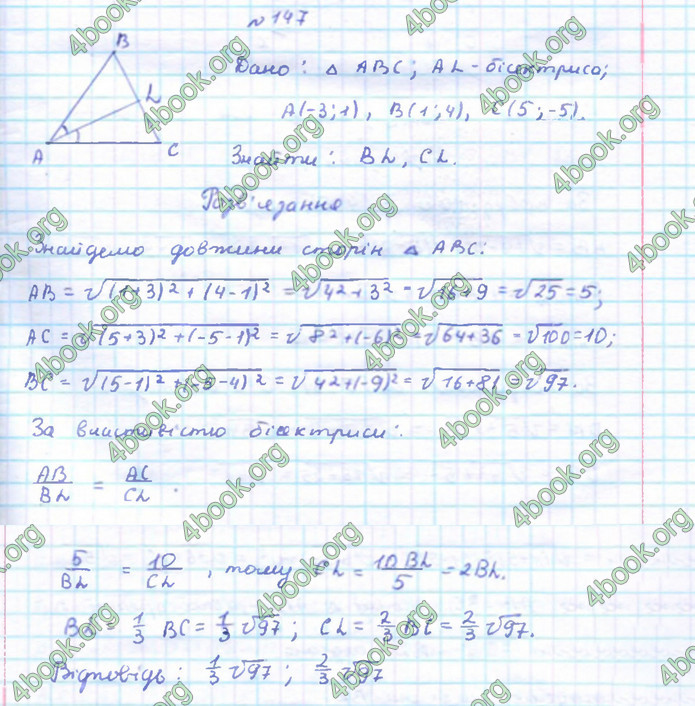 № 147
B
L
A
C
Дано: △ ABC; AL - бісектриса;
A(-3;1), B(1;4), C(5;-5).
Знайти: BL, CL.
Розв'язання
Знайдемо довжини сторін △ ABC:
AB = √(1+3)² + (4-1)² = √4²+3² = √16+9 = √25 = 5;
AC = √(5+3)² + (-5-1)² = √8²+(-6)² = √64+36 = √100 = 10;
BC = √(5-1)² + (-5-4)² = √4²+(-9)² = √16+81 = √97.
За властивістю бісектриси:
AB/BL = AC/CL.
5/BL = 10/CL, тому CL = 10BL/5 = 2BL.
BL = 1/3 BC = 1/3 √97; CL = 2/3 BC = 2/3 √97.
Відповідь: 1/3 √97; 2/3 √97
4book.org